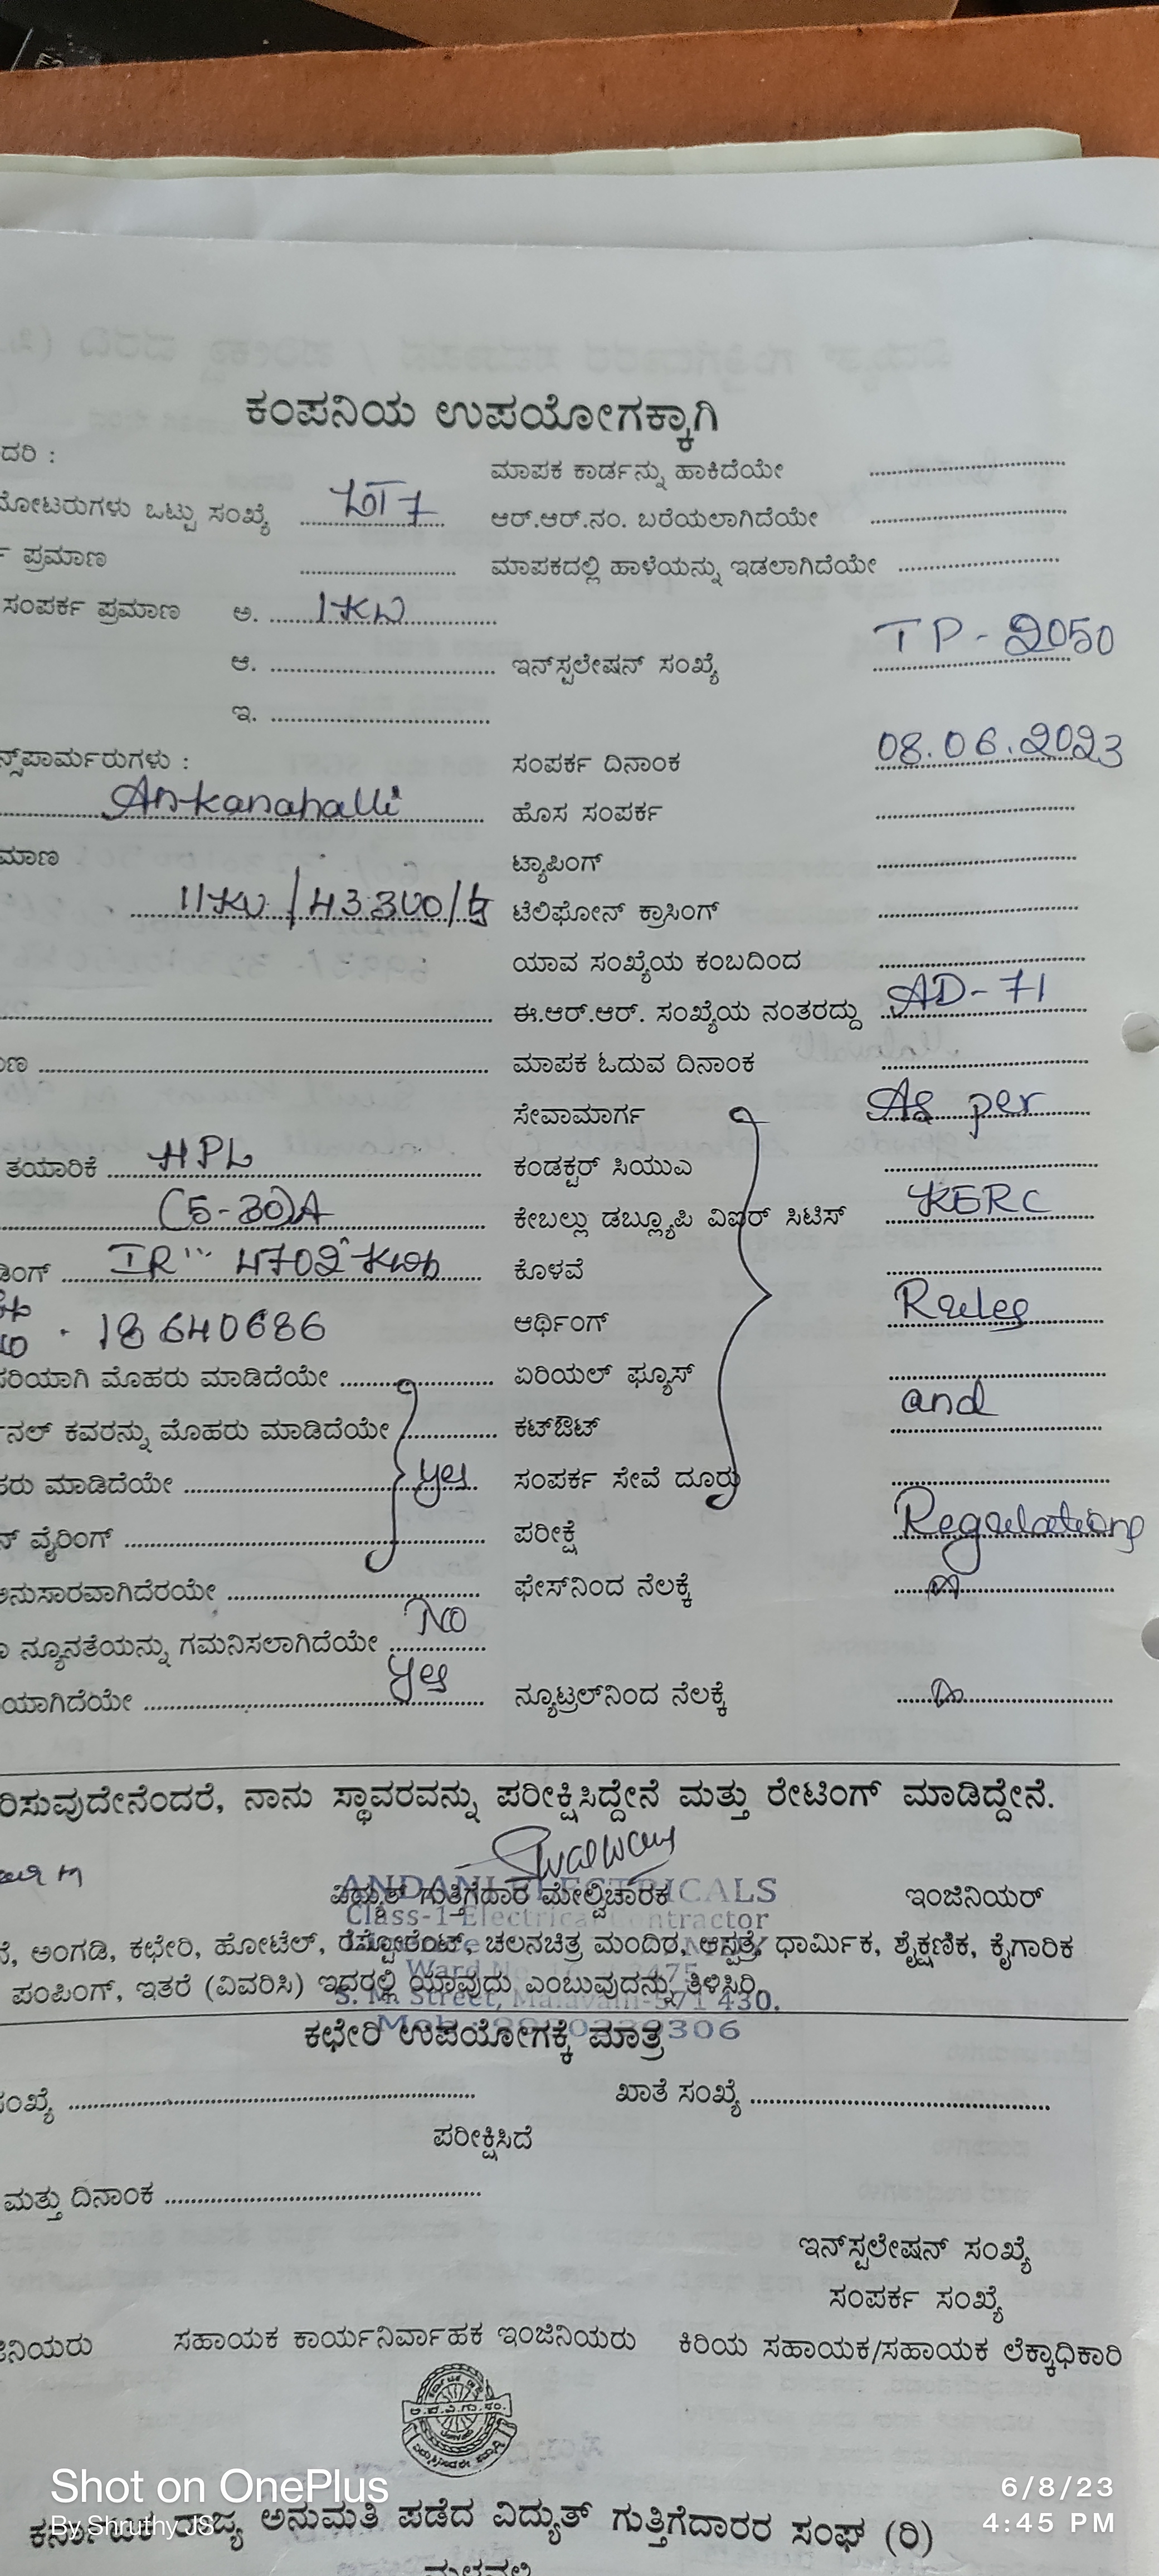 ಕಂಪನಿಯ ಉಪಯೋಗಕ್ಕಾಗಿ
ದರಿ :
ಮಾಪಕ ಕಾರ್ಡನ್ನು ಹಾಕಿದೆಯೇ
ಮೋಟರುಗಳು ಒಟ್ಟು ಸಂಖ್ಯೆ
ಆರ್.ಆರ್.ನಂ. ಬರೆಯಲಾಗಿದೆಯೇ
ಪ್ರಮಾಣ
ಮಾಪಕದಲ್ಲಿ ಹಾಳೆಯನ್ನು ಇಡಲಾಗಿದೆಯೇ
ಸಂಪರ್ಕ ಪ್ರಮಾಣ ಅ. 1KW
ಆ. ಇನ್‌ಸ್ಟಲೇಷನ್ ಸಂಖ್ಯೆ TP-2050
ಇ.
ನ್ಸ್‌ಪಾರ್ಮರುಗಳು : ಸಂಪರ್ಕ ದಿನಾಂಕ 08.06.2023
Ankanahalli ಹೊಸ ಸಂಪರ್ಕ
ಮಾಣ ಟ್ಯಾಪಿಂಗ್
11KV ಟೆಲಿಫೋನ್ ಕ್ರಾಸಿಂಗ್
ಯಾವ ಸಂಖ್ಯೆಯ ಕಂಬದಿಂದ
ಈ.ಆರ್.ಆರ್. ಸಂಖ್ಯೆಯ ನಂತರದ್ದು AD-71
ಾಣ ಮಾಪಕ ಓದುವ ದಿನಾಂಕ
ಸೇವಾಮಾರ್ಗ As per
ತಯಾರಿಕೆ HPL ಕಂಡಕ್ಟರ್ ಸಿಯುಎ
(5-30)A ಕೇಬಲ್ಲು ಡಬ್ಲ್ಯೂಪಿ ವಿಐರ್ ಸಿಟಿಸ್ KERC
ಡಿಂಗ್ IR 4702 Kwh ಕೊಳವೆ
18640686 ಆರ್ಥಿಂಗ್ Rules
ಸರಿಯಾಗಿ ಮೊಹರು ಮಾಡಿದೆಯೇ ಏರಿಯಲ್ ಫ್ಯೂಸ್
ನಲ್ ಕವರನ್ನು ಮೊಹರು ಮಾಡಿದೆಯೇ ಕಟ್‌ಔಟ್ and
ಹರು ಮಾಡಿದೆಯೇ yes ಸಂಪರ್ಕ ಸೇವೆ ದೂರು
ನ್ ವೈರಿಂಗ್ ಪರೀಕ್ಷೆ Regulations
ಅನುಸಾರವಾಗಿದೆರಯೇ ಫೇಸ್‌ನಿಂದ ನೆಲಕ್ಕೆ
ನ್ಯೂನತೆಯನ್ನು ಗಮನಿಸಲಾಗಿದೆಯೇ No
ಯಾಗಿದೆಯೇ yes ನ್ಯೂಟ್ರಲ್‌ನಿಂದ ನೆಲಕ್ಕೆ
ರಿಸುವುದೇನೆಂದರೆ, ನಾನು ಸ್ಥಾವರವನ್ನು ಪರೀಕ್ಷಿಸಿದ್ದೇನೆ ಮತ್ತು ರೇಟಿಂಗ್ ಮಾಡಿದ್ದೇನೆ.
ANDANI ELECTRICALS
ವಿದ್ಯುತ್ ಗುತ್ತಿಗೆದಾರ ಮೇಲ್ವಿಚಾರಕ ಇಂಜಿನಿಯರ್
Class-1 Electrical Contractor
ನೆ, ಅಂಗಡಿ, ಕಛೇರಿ, ಹೋಟೆಲ್, ರೆಸ್ಟೋರೆಂಟ್, ಚಲನಚಿತ್ರ ಮಂದಿರ, ಆಸ್ಪತ್ರೆ, ಧಾರ್ಮಿಕ, ಶೈಕ್ಷಣಿಕ, ಕೈಗಾರಿಕ
ಪಂಪಿಂಗ್, ಇತರೆ (ವಿವರಿಸಿ) ಇದರಲ್ಲಿ ಯಾವುದು ಎಂಬುವುದನ್ನು ತಿಳಿಸಿರಿ.
S. M. Street, Malavalli-571 430.
ಕಛೇರಿ ಉಪಯೋಗಕ್ಕೆ ಮಾತ್ರ
ಸಂಖ್ಯೆ ಖಾತೆ ಸಂಖ್ಯೆ
ಪರೀಕ್ಷಿಸಿದೆ
ಮತ್ತು ದಿನಾಂಕ
ಇನ್‌ಸ್ಟಲೇಷನ್ ಸಂಖ್ಯೆ
ಸಂಪರ್ಕ ಸಂಖ್ಯೆ
ಜಿನಿಯರು ಸಹಾಯಕ ಕಾರ್ಯನಿರ್ವಾಹಕ ಇಂಜಿನಿಯರು ಕಿರಿಯ ಸಹಾಯಕ/ಸಹಾಯಕ ಲೆಕ್ಕಾಧಿಕಾರಿ
Shot on OnePlus
By Shruthy JS
6/8/23
4:45 PM
ಕರ್ನಾಟಕ ರಾಜ್ಯ ಅನುಮತಿ ಪಡೆದ ವಿದ್ಯುತ್ ಗುತ್ತಿಗೆದಾರರ ಸಂಘ (ರಿ)
ಮಳವಳ್ಳಿ